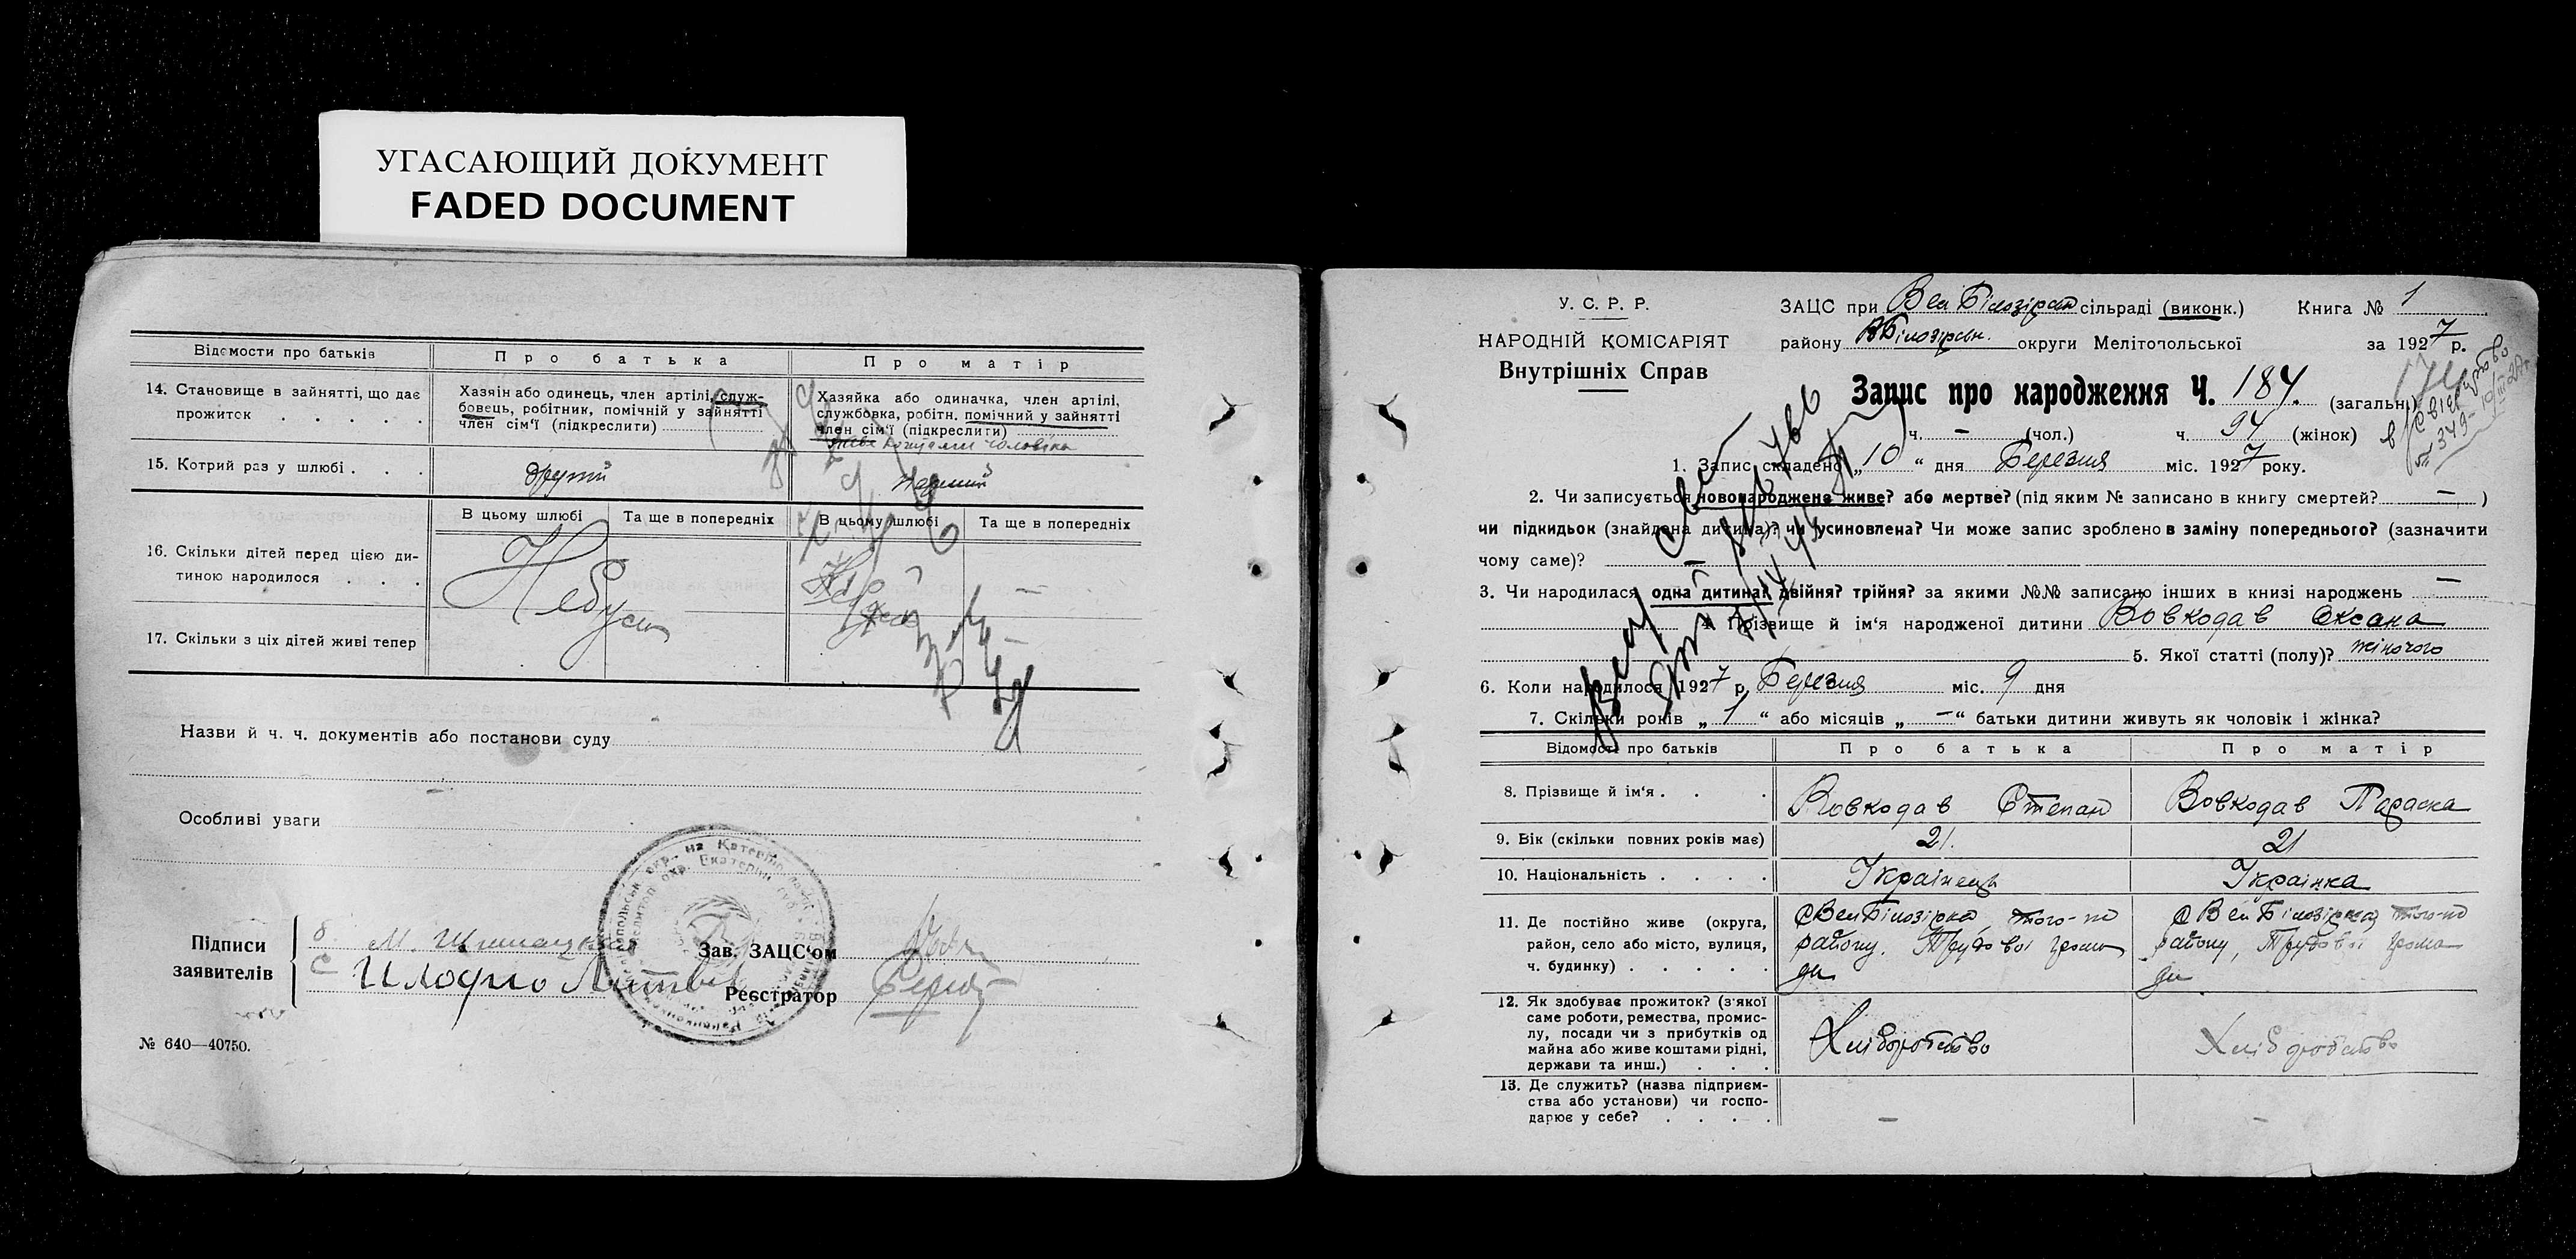 УГАСАЮЩИЙ ДОКУМЕНТ
FADED DOCUMENT
Відомости про батьків
Про батька
Про матір
14. Становище в зайнятті, що дає
прожиток . . . .
Хазяїн або одинець, член артілі, служ-
бовець, робітник, помічній у зайнятті
член сім'ї (підкреслити)
Хазяйка або одиначка, член артілі,
службовка, робітн. помічний у зайнятті
член сім'ї (підкреслити)
живе коштами чоловіка
15. Котрий раз у шлюбі . . .
другий
Перший
В цьому шлюбі
Та ще в попередніх
В цьому шлюбі
Та ще в попередніх
16. Скільки дітей перед цією ди-
тиною народилося . . .
17. Скільки з ціх дітей живі тепер
Назви й ч. ч. документів або постанови суду
Особливі уваги
Підписи
заявителів
Зав. ЗАЦС'ом
Реєстратор
№ 640—40750.
У. С. Р. Р.
НАРОДНІЙ КОМІСАРІЯТ
Внутрішніх Справ
ЗАЦС при Вел Білозірск сільраді (виконк.) Книга № 1
району ВБілозірськ. округи Мелітопольської за 1927 р.
Запис про народження Ч. 184. (загальн.)
ч. — (чол.) ч. 94 (жінок)
1. Запис складено „10“ дня Березня міс. 1927 року.
2. Чи записується новонароджене живе? або мертве? (під яким № записано в книгу смертей? — )
чи підкидьок (знайдена дитина)? чи усиновлена? Чи може запис зроблено в заміну попереднього? (зазначити
чому саме)? —
3. Чи народилася одна дитина? двійня? трійня? за якими №№ записано інших в книзі народжень —
4. Прізвище й ім'я народженої дитини Вовкодав Оксана
5. Якої статті (полу)? жіночого
6. Коли народилося 1927 р. Березня міс. 9 дня
7. Скільки років „1“ або місяців „—“ батьки дитини живуть як чоловік і жінка?
Відомості про батьків
Про батька
Про матір
8. Прізвище й ім'я . . .
Вовкодав Степан
Вовкодав Параска
9. Вік (скільки повних років має)
21.
21
10. Національність . . . .
Українець
Українка
11. Де постійно живе (округа,
район, село або місто, вулиця,
ч. будинку) . . . . .
С Вел Білозірка, того-ж
району. Трудової грома
ди
С Вел Білозірка, того-ж
району, Трудової грома
ди
12. Як здобуває прожиток? (з'якої
саме роботи, ремества, промис-
лу, посади чи з прибутків од
майна або живе коштами рідні,
держави та инш.) . . .
Хліборобство
Хліборобство
13. Де служить? (назва підприєм-
ства або установи) чи госпо-
дарює у себе? . . . .
—
—